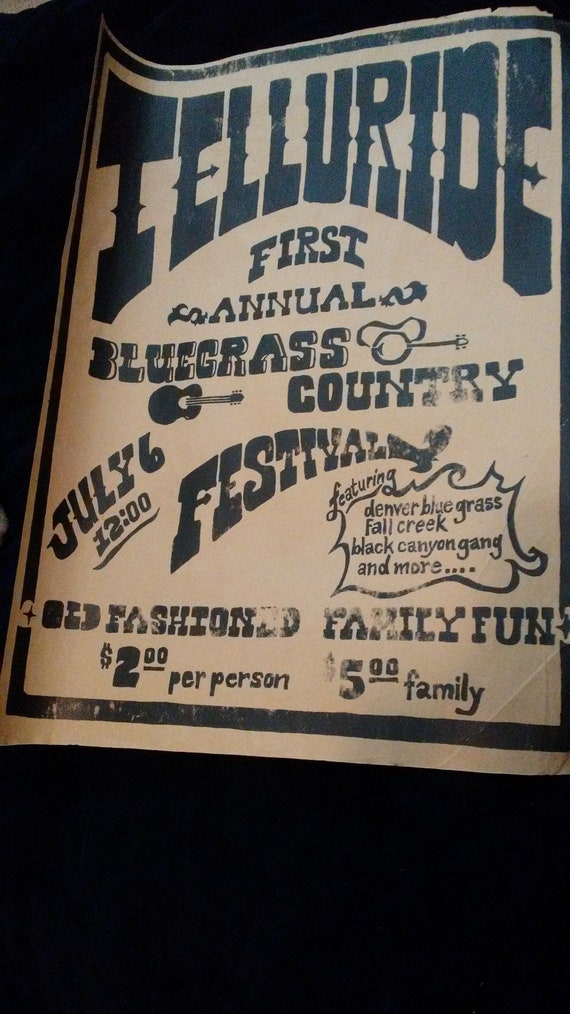 TELLURIDE
FIRST
ANNUAL
BLUEGRASS
COUNTRY
FESTIVAL
JULY 6
12:00
featuring
denver blue grass
fall creek
black canyon gang
and more....
OLD FASHIONED FAMILY FUN
$2.00 per person $5.00 family